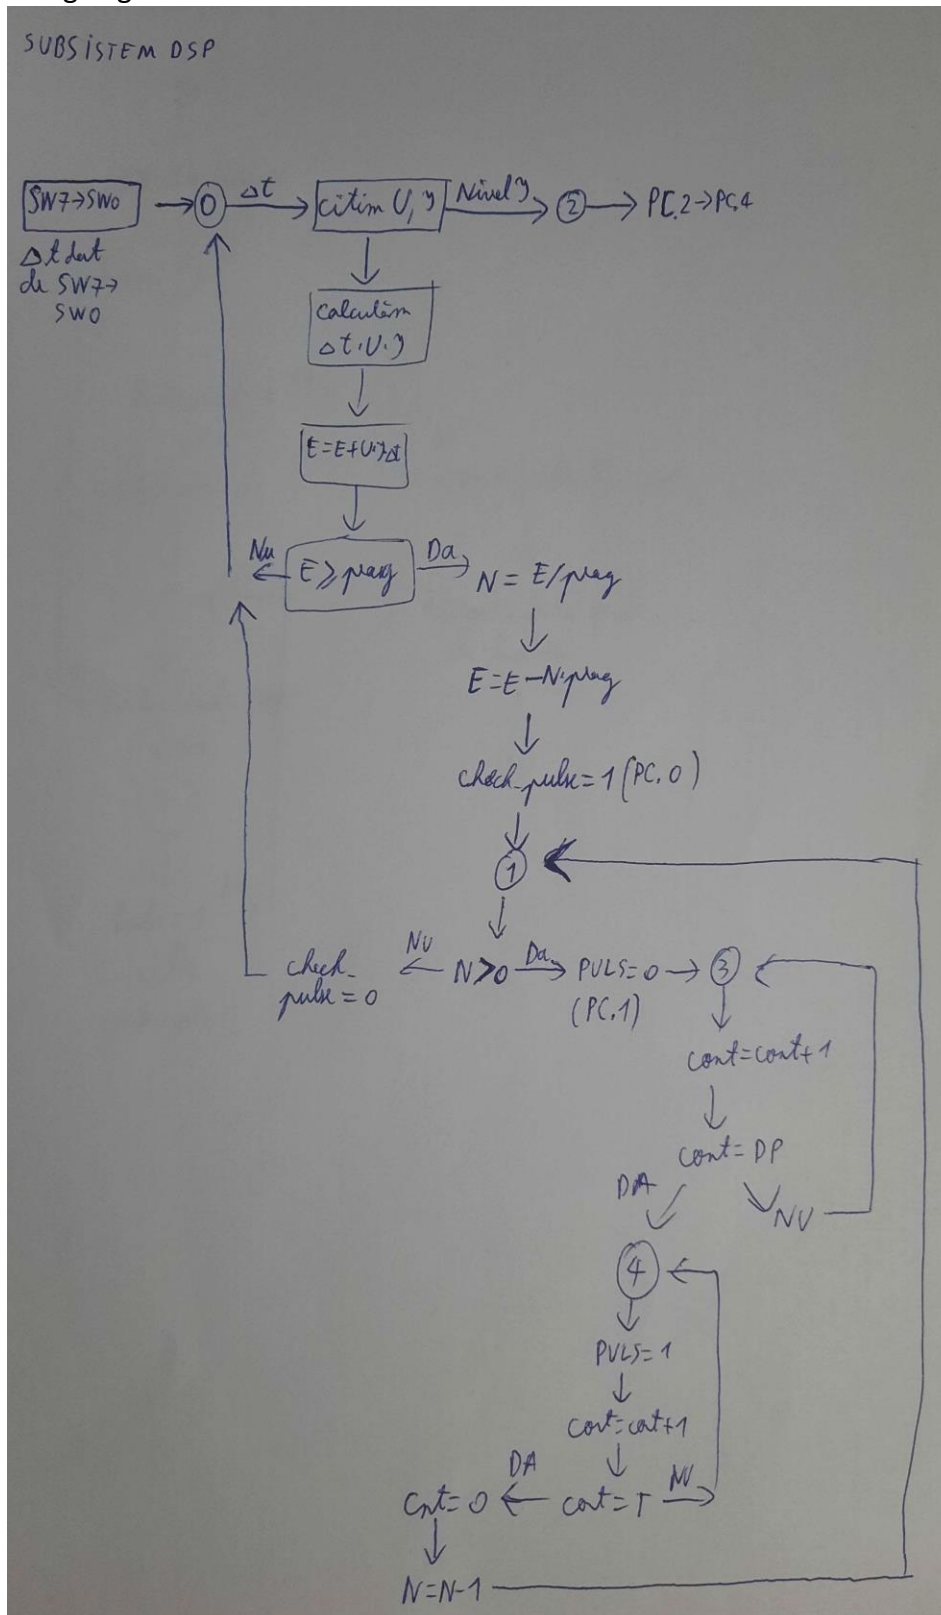 SUBSISTEM DSP
SW7→SW0
0
Δt
citim U, I
Nivel I
2
PC.2→PC.4
Δt dat
de SW7→
SW0
calculăm
Δt·U·I
E=E+U·I·Δt
Nu
E≥prag
Da
N = E/prag
E=E-N·prag
check_pulse=1 (PC.0)
1
check_
pulse=0
NU
N>0
Da
PULS=0
(PC.1)
3
cont=cont+1
cont=DP
DA
NU
4
PULS=1
cont=cont+1
cont=T
DA
NU
cnt=0
N=N-1